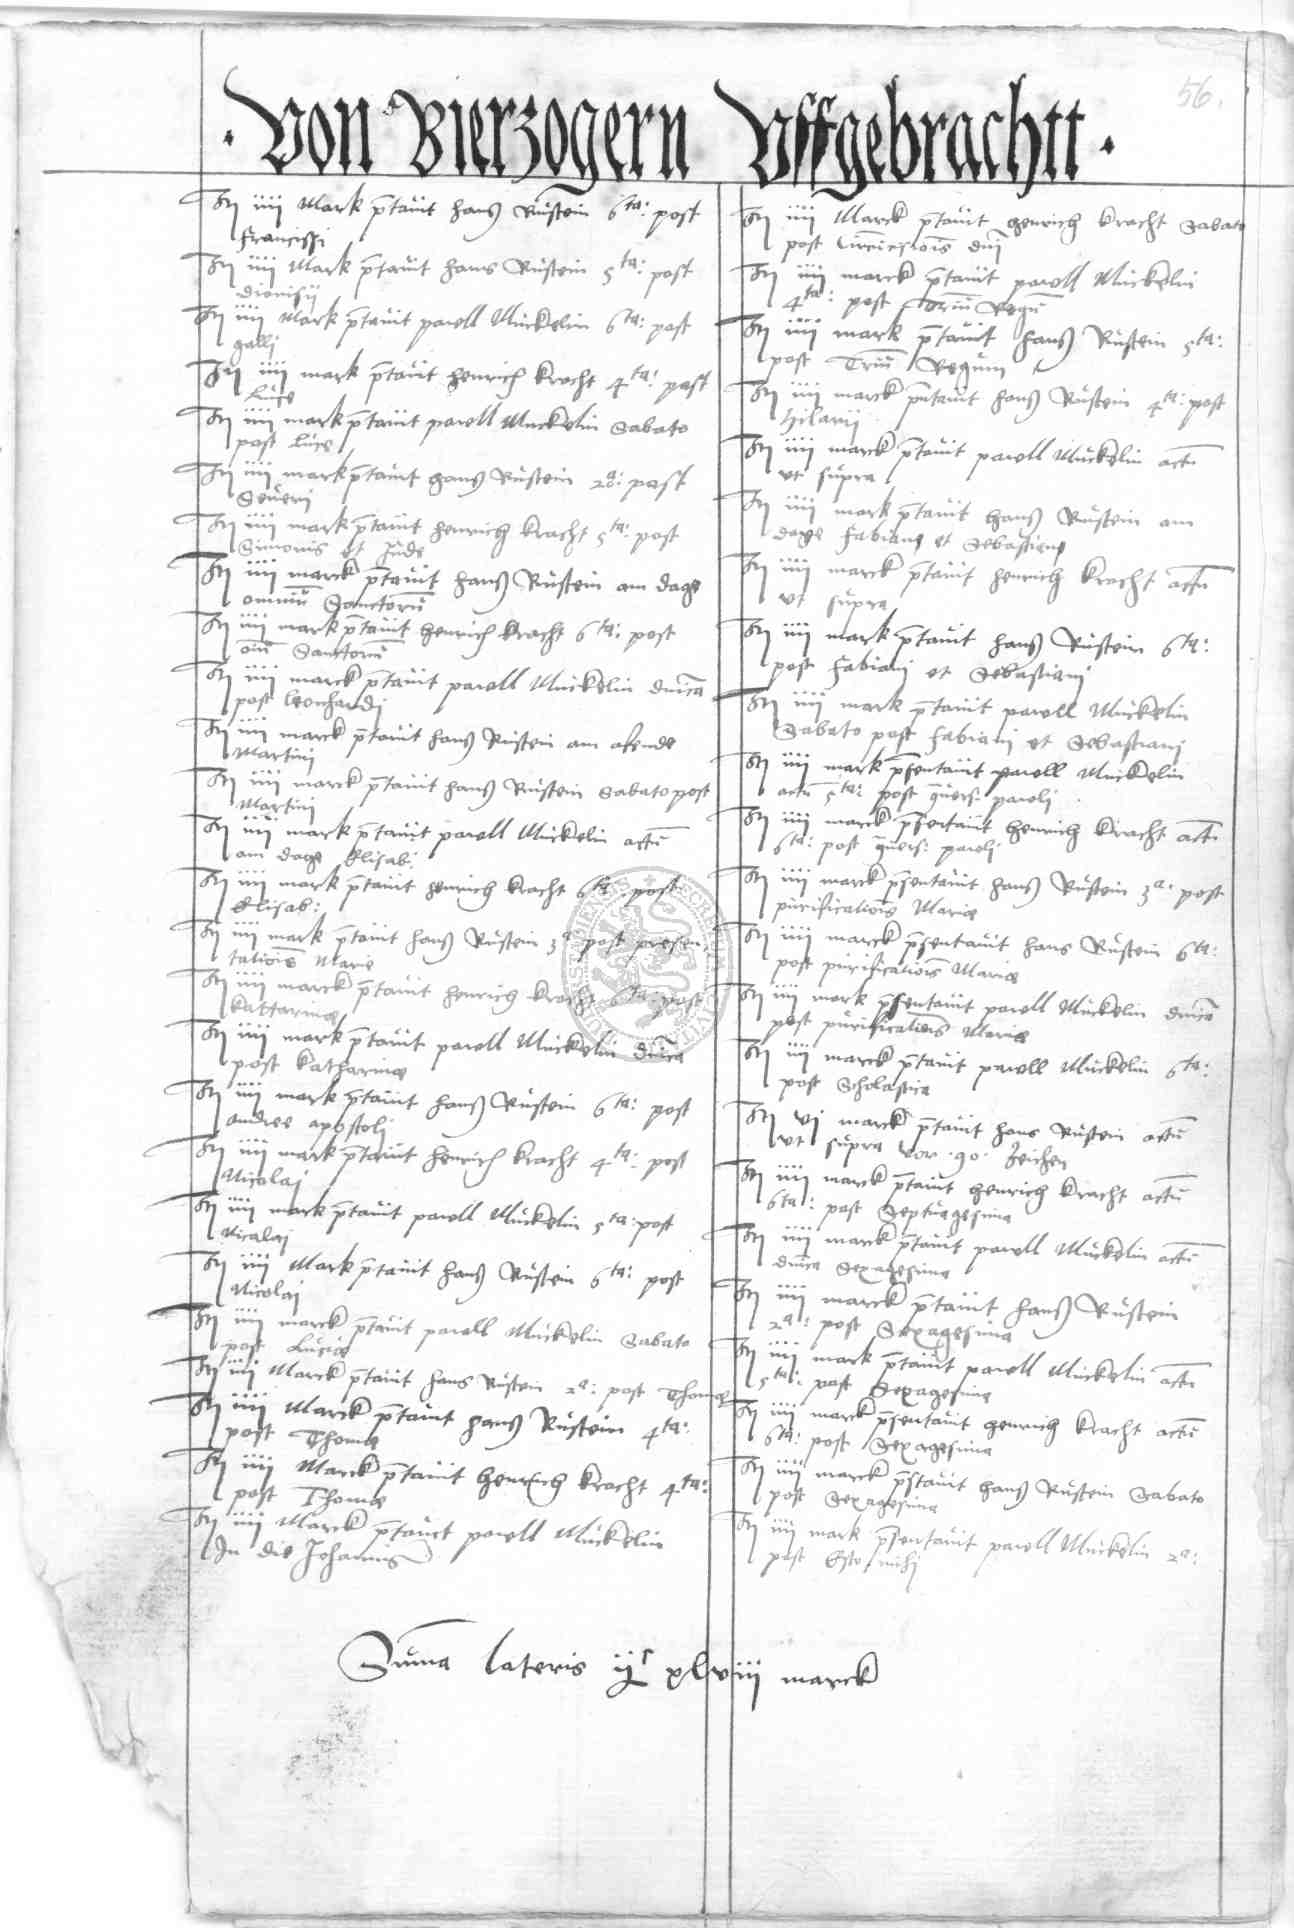 56.
Von Bierzogern Uffgebrachtt
It iiij Mark p̄tauit hans Rustein 6ta: post
Francissi
It iiij Mark p̄tauit hans Rustein 5ta: post
dionisij
It iiij Mark p̄tauit pawell Mückelin 6ta: post
galli
It iiij mark p̄tauit henrich kracht 4ta: post
Luce
It iiij mark p̄tauit pawell Muckelin Sabato
post Luce
It iiij mark p̄tauit hans Rustein 2a: post
Seuerj
It iiij mark p̄tauit henrich kracht 5ta: post
Simonis et Jude
It iiij marck p̄tauit hans Rustein am dage
omniū Sanctorū
It iiij mark p̄tauit henrich kracht 6ta: post
oīū Sanctorū
It iiij marck p̄tauit pawell Mückelin dnīca
post leonhardj
It iiij marck p̄tauit hans Rustein am abende
Martini
It iiij marck p̄tauit hans Rustein Sabato post
Martini
It iiij mark p̄tauit pawell Mückelin actū
am dage Elisab:
It iiij mark p̄tauit henrich kracht 6ta post
Elisab:
It iiij mark p̄tauit hans Rustein 3a post presen
tationis Marie
It iiij marck p̄tauit henrich kracht 6ta: post
Kattarinæ
It iiij mark p̄tauit pawell Mückelin dnīca
post Katharinæ
It iiij mark p̄tauit hans Rustein 6ta: post
andree apostolj
It iiij mark p̄tauit henrich kracht 4ta: post
Nicolaj
It iiij mark p̄tauit pawell Mückelin 5ta: post
Nicolaj
It iiij Mark p̄tauit hans Rustein 6ta: post
Nicolaj
It iiij marck p̄tauit pawell Mückelin Sabato
post Luciæ
It iiij Marck p̄tauit hans Rustein 2a: post Thomæ
It iiij Marck p̄tauit hans Rustein 4ta:
post Thomæ
It iiij Marck p̄tauit henrich kracht 4ta:
post Thomæ
It iiij Marck p̄tauit pawell Mückelin
In die Johannis
It iiij Marck p̄tauit henrich kracht Sabato
post circūcisiōis dnī
It iiij marck p̄tauit pawell Mückelin
4ta: post Triū Regū
It iiij mark p̄tauit hans Rustein 5ta:
post Triū Regum
It iiij marck p̄ntauit hans Rustein 4ta: post
Hilarij
It iiij marck p̄tauit pawell Mückelin actū
vt supra
It iiij mark p̄tauit hans Rustein am
dage Fabiani et Sebastiani
It iiij marck p̄tauit henrich kracht actū
vt supra
It iiij mark p̄tauit hans Rustein 6ta:
post Fabiani et Sebastianj
It iiij mark p̄tauit pawell Mückelin
Sabato post Fabiani et Sebastianj
It iiij mark p̄sentauit pawell Mückelin
actū 5ta: post 9uers: pawli
It iiij marck p̄sentauit henrich kracht actū
6ta: post 9uers: pawli
It iiij marck p̄sentauit hans Rustein 3a: post
purificationis Mariæ
It iiij marck p̄sentauit hans Rustein 6ta:
post purificationis Mariæ
It iiij mark p̄sentauit pawell Mückelin dnīca
post purificationis Mariæ
It iiij marck p̄tauit pawell Mückelin 6ta:
post Scholastica
It vj marck p̄tauit hans Rustein actū
vt supra vor 90 Zeichen
It iiij marck p̄tauit henrich kracht actū
6ta: post Septuagesima
It iiij marck p̄tauit pawell Mückelin actū
dnīca Sexagesima
It iiij marck p̄tauit hans Rustein
2a: post Sexagesima
It iiij mark p̄tauit pawell Mückelin actū
5ta: post Sexagesima
It iiij marck p̄sentauit henrich kracht actū
6ta: post Sexagesima
It iiij marck p̄stauit hans Rustein Sabato
post Sexagesima
It iiij mark p̄sentauit pawell Mückelin 2a:
post Esto mihj
Suma lateris ijc xlviij marck